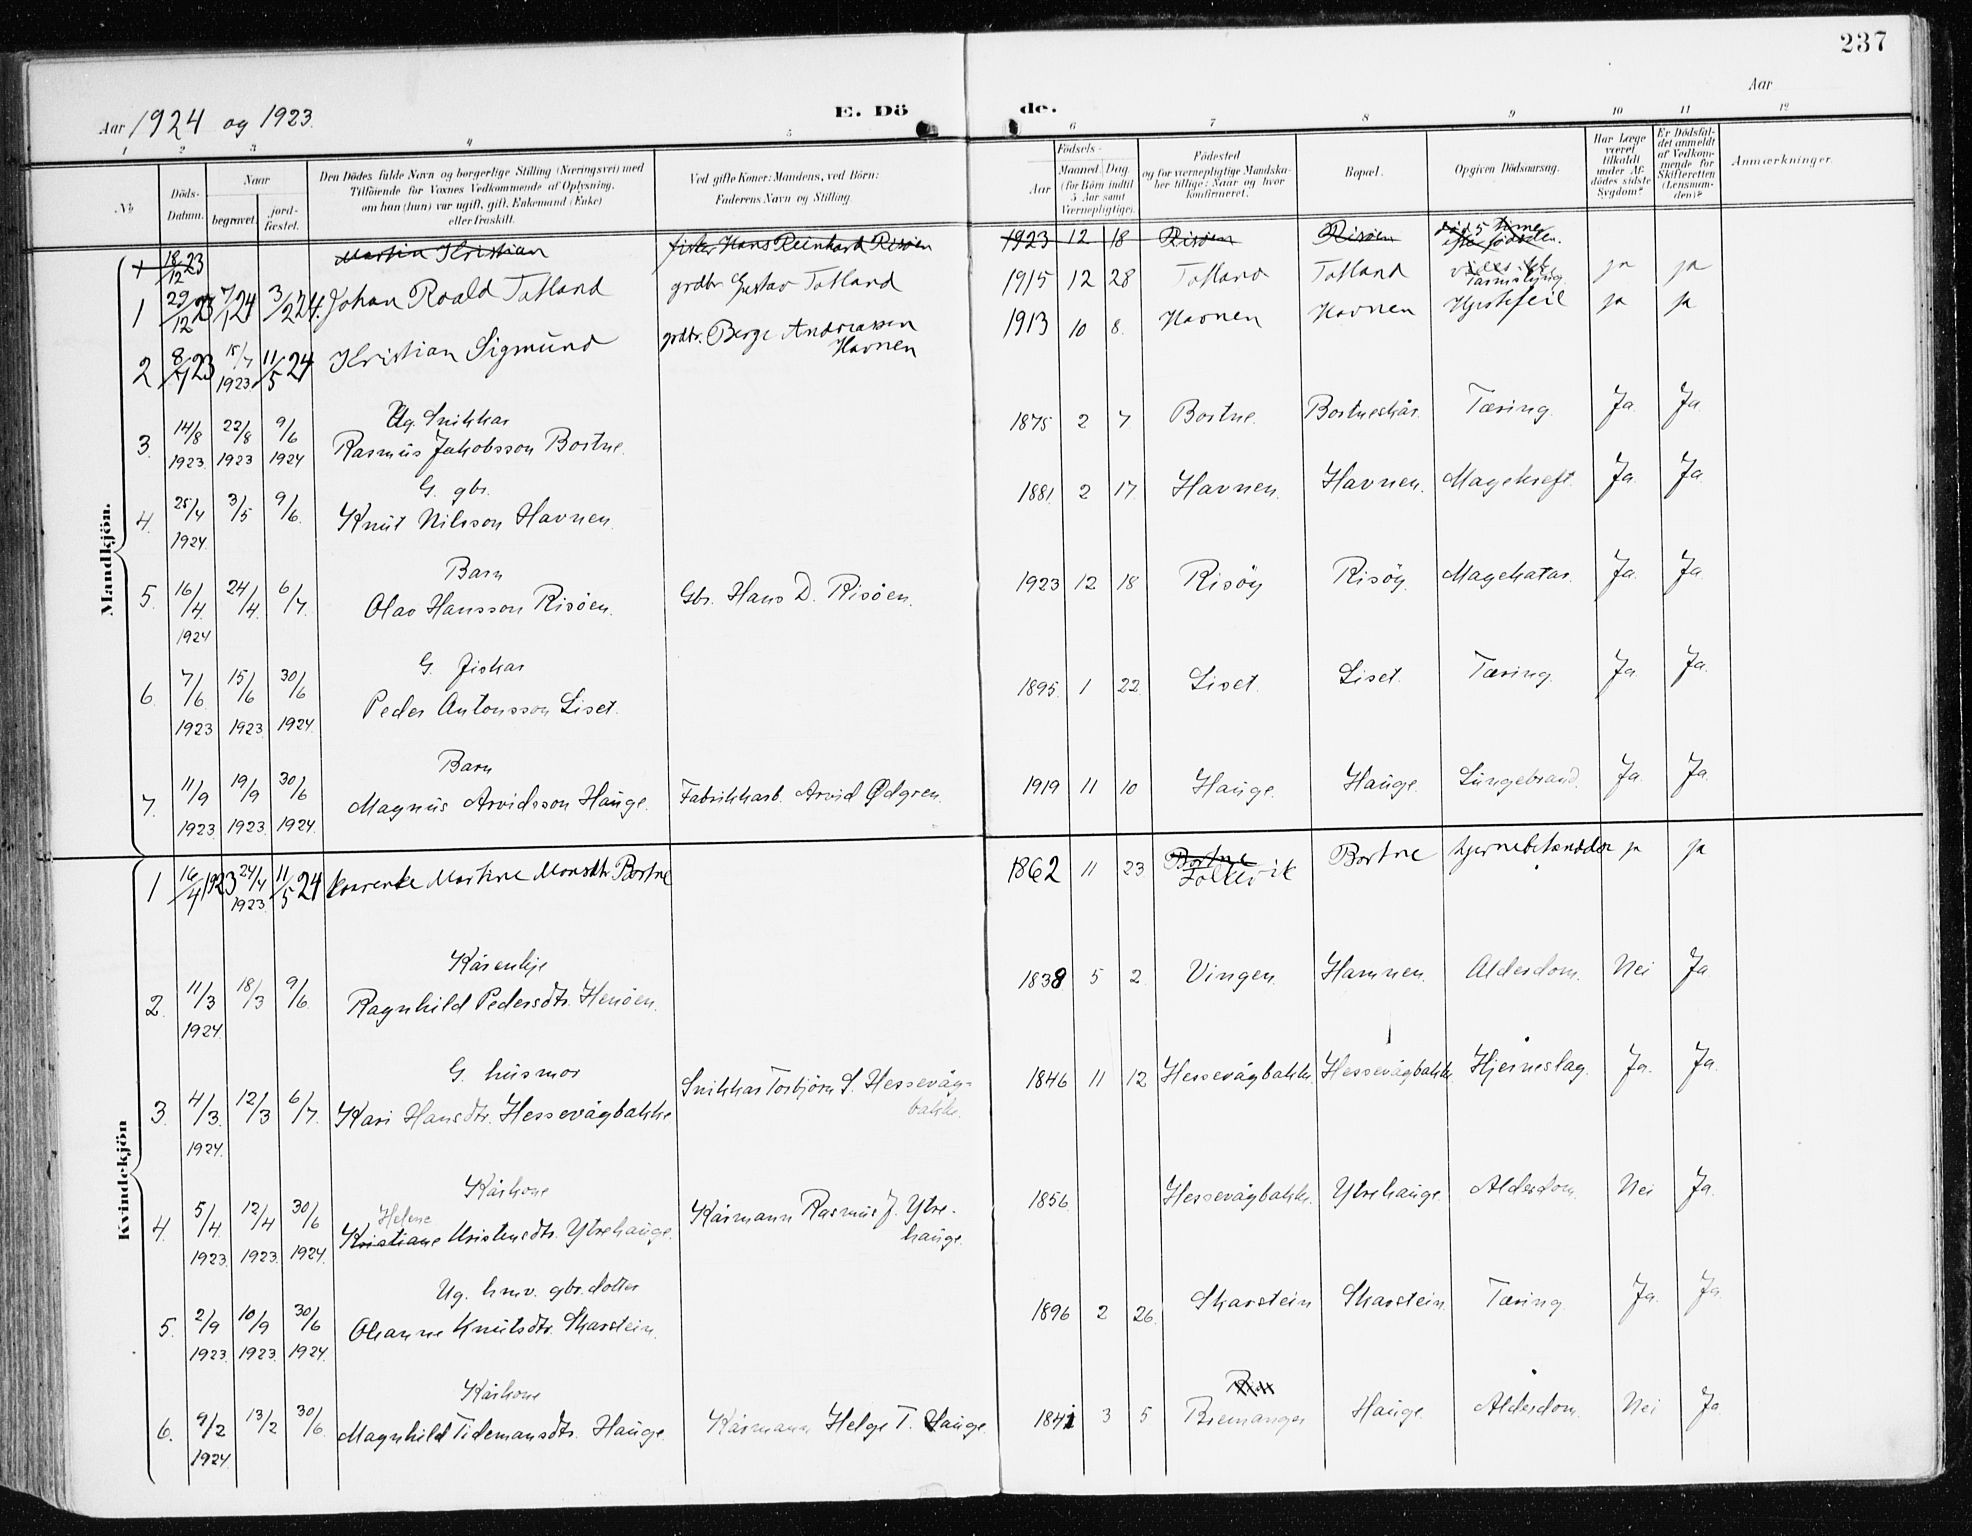 237
Aar 1924 og 1923.
E. Dö de.
Aar
1 2 3 4 5 6 7 8 9 10 11 12
No
Döds-Datum.
Naar
begravet.
jord-fæstet.
Den Dödes fulde Navn og borgerlige Stilling (Næringsvei) med
Tilföiende for Voxnes Vedkommende af Oplysning,
om han (hun) var ugift, gift, Enkemand (Enke)
eller fraskilt.
Ved gifte Koner: Mandens, ved Börn:
Faderens Navn og Stilling.
Födsels-
Aar
Maaned Dag
(for Börn indtil
5 Aar samt
Værnepligtige).
Födested
og for værnepligtige Mandska-
ber tillige: Naar og hvor
konfirmeret.
Bopæl.
Opgiven Dödsaarsag.
Har Læge
været
tilkaldt
under Af-
dödes sidste
Sygdom?
Er Dödsfal-
det anmeldt
af Vedkom-
mende for
Skifteretten
(Lensman-
den)?
Anmærkninger.
Mandkjön.
1 18/12 23 Martin Kristian fisker Hans Reinhard Risöen 1923 12 18 Risöen Risöen död 5 timer efter fødselen.
1 29/12 23 7/1 24 3/2 24. Johan Roald Totland grdbr Gustav Totland 1915 12 28 Totland Totland ja ja
2 8/7 23 15/7 1923 11/5 24 Kristian Sigmund grdbr. Berge Andreassen Havnen 1913 10 8. Havnen Havnen Hjertefeil ja ja
3. 14/8 1923 22/8 1923 9/6 1924 Ug. Snikkar
Rasmus Jakobsson Bortne. 1875 2 7 Bortne. Bortneskår. Tæring. Ja. Ja.
4. 25/4 1924 3/5 9/6. G. gbr.
Knut Nilsson Havnen. 1881 2 17 Havnen. Havnen. Magekreft. Ja. Ja.
5. 16/4 1924 24/4 6/7. Barn
Olav Hansson Risöen. Gbr. Hans D. Risöen. 1923 12 18 Risöy Risöy. Magekatar. Ja. Ja.
6. 7/6 1923 15/6 1923 30/6 1924. G. Fiskar
Peder Antonsson Liset. 1895 1 22 Liset. Liset. Tæring. Ja. Ja.
7. 11/9 1923 19/9 1923 30/6 1924. Barn
Magnus Arvidsson Hauge. Fabrikkarb. Arvid Ødgren. 1919 11 10 Hauge. Hauge. Lungebrand. Ja. Ja.
Kvindekjön
1 16/4 1923 24/4 1923 11/5 24 Laurentze Martine Monsdtr Bortne 1862 11 23 Bortne
Folkevik Bortne hjernebetændelse ja ja
2. 11/3 1924. 18/3 9/6. Kårenkje
Ragnhild Pedersdtr. Henöen. 1838 5 2. Vingen. Hamnen. Alderdom. Nei Ja.
3. 4/3. 1924. 12/3 6/7. G. husmor
Kari Hansdtr. Hessevågbakke. Snikkar Torbjörn S. Hessevåg-
bakke. 1846 11 12 Hessevågbakke. Hessevågbakke. Hjerneslag. Ja. Ja.
4. 5/4. 1923. 12/4 1923. 30/6 1924. Kårkone
Helene
Kristiane Kristensdtr. Ytrehauge. Kårmann Rasmus J. Ytre-
hauge. 1856. Hessevågbakke. Ytrehauge. Alderdom. Nei Ja.
5. 2/9 1923. 10/9 1923. 30/6 1924. Ug. hmv. gbr. dotter
Ohanne Knutsdtr. Skarstein. 1896 2 26. Skarstein Skarstein. Tæring. Ja. Ja.
6. 9/2 1924. 13/2 30/6. Kårkone
Magnhild Tidemansdtr. Hauge. Kårmann Helge T. Hauge. 1841 3 5 Bremanger Hauge. Alderdom. Nei Ja